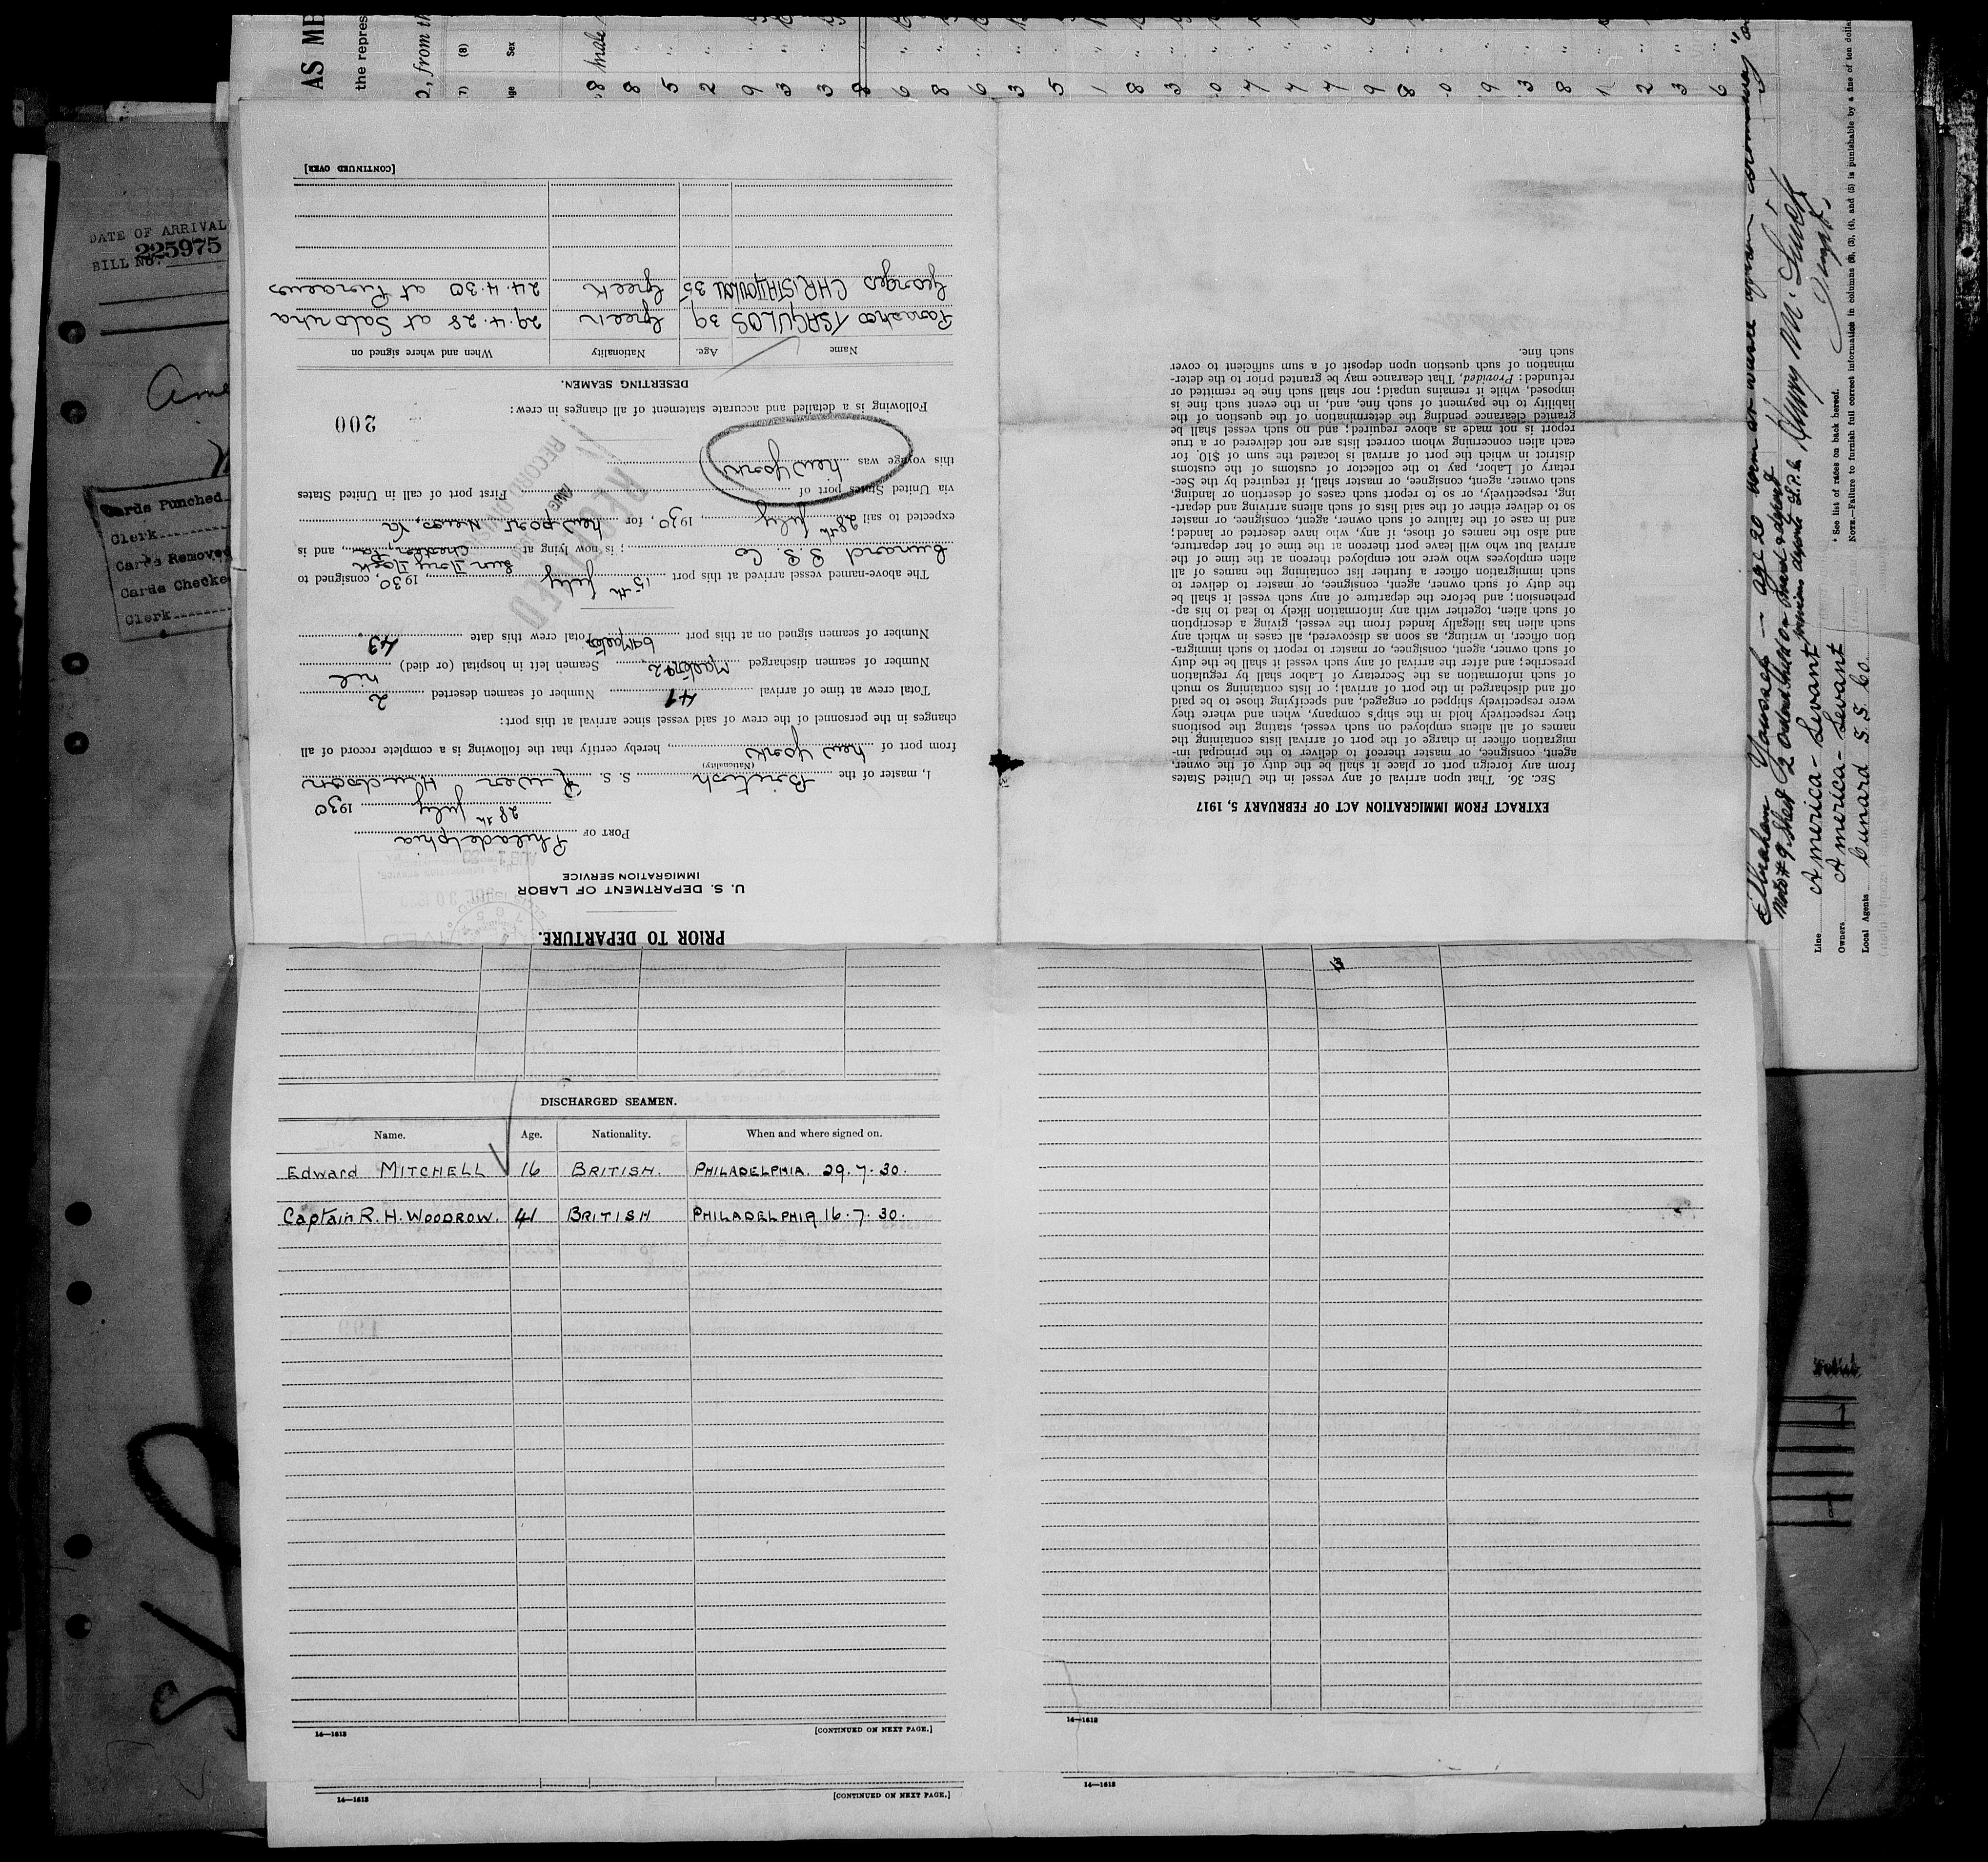 AS ME
the repres
2, from th
(7) (8)
ge Sex
DATE OF ARRIVAL
225975
BILL NO.
Cards Punched
Clerk
Cards Removed
Cards Checke
Clerk
PRIOR TO DEPARTURE.
U. S. DEPARTMENT OF LABOR
IMMIGRATION SERVICE
PORT OF Philadelphia
28th July 1930
I, master of the British S. S. River Hudson
(Nationality)
from port of New York, hereby certify that the following is a complete record of all
changes in the personnel of the crew of said vessel since arrival at this port:
Total crew at time of arrival 41 Number of seamen deserted 2
Number of seamen discharged 2 Seamen left in hospital (or died) nil
Number of seamen signed on at this port Total crew this date 43
The above-named vessel arrived at this port 15th July, 1930, consigned to
Cunard S.S. Co; is now lying at Sun Dry Dock Chester, Pa, and is
expected to sail 28th July, 1930, for New Port News, Va
via United States port of First port of call in United States
this voyage was New York
RECORDED
RECORD DIVISION
Following is a detailed and accurate statement of all changes in crew:
200
DESERTING SEAMEN.
Name Age. Nationality When and where signed on
TSAGULOS 39 Greek 29.4.28 at Salonika
Georges 35 Greek 24.4.30 at Piraeus
[CONTINUED OVER]
EXTRACT FROM IMMIGRATION ACT OF FEBRUARY 5, 1917
SEC. 36. That upon arrival of any vessel in the United States
from any foreign port or place it shall be the duty of the owner,
agent, consignee, or master thereof to deliver to the principal im-
migration officer in charge of the port of arrival lists containing the
names of all aliens employed on such vessel, stating the positions
they respectively hold in the ship's company, when and where they
were respectively shipped or engaged, and specifying those to be paid
off and discharged in the port of arrival; or lists containing so much
of such information as the Secretary of Labor shall by regulation
prescribe; and after the arrival of any such vessel it shall be the duty
of such owner, agent, consignee, or master to report to such immigra-
tion officer, in writing, as soon as discovered, all cases in which any
such alien has illegally landed from the vessel, giving a description
of such alien, together with any information likely to lead to his ap-
prehension; and before the departure of any such vessel it shall be
the duty of such owner, agent, consignee, or master to deliver to
such immigration officer a further list containing the names of all
alien employees who were not employed thereon at the time of the
arrival but who will leave port thereon at the time of her departure,
and also the names of those, if any, who have deserted or landed;
and in case of the failure of such owner, agent, consignee, or master
so to deliver either of the said lists of such aliens arriving and depart-
ing, respectively, or so to report such cases of desertion or landing,
such owner, agent, consignee, or master, shall, if required by the Sec-
retary of Labor, pay to the collector of customs of the customs
district in which the port of arrival is located the sum of $10. for
each alien concerning whom correct lists are not delivered or a true
report is not made as above required; and no such vessel shall be
granted clearance pending the determination of the question of the
liability to the payment of such fine, and in the event such fine is
imposed, while it remains unpaid; nor shall such fine be remitted or
refunded: Provided, That clearance may be granted prior to the deter-
mination of such question upon deposit of a sum sufficient to cover
such fine.
DISCHARGED SEAMEN.
Name. Age. Nationality. When and where signed on.
Edward MITCHELL 16 BRITISH. PHILADELPHIA. 29.7.30.
Captain R. H. WOODROW. 41 BRITISH PHILADELPHIA 16.7.30.
14—1613 [CONTINUED ON NEXT PAGE.]
14—1613
14—1613 [CONTINUED ON NEXT PAGE.]
14—1613
Line America-Levant
Owners America-Levant
Local Agents Cunard S. S. Co.
* See list of races on back hereof.
NOTE.—Failure to furnish full correct information in columns (2), (3), (4), and (5) is punishable by a fine of ten dolla